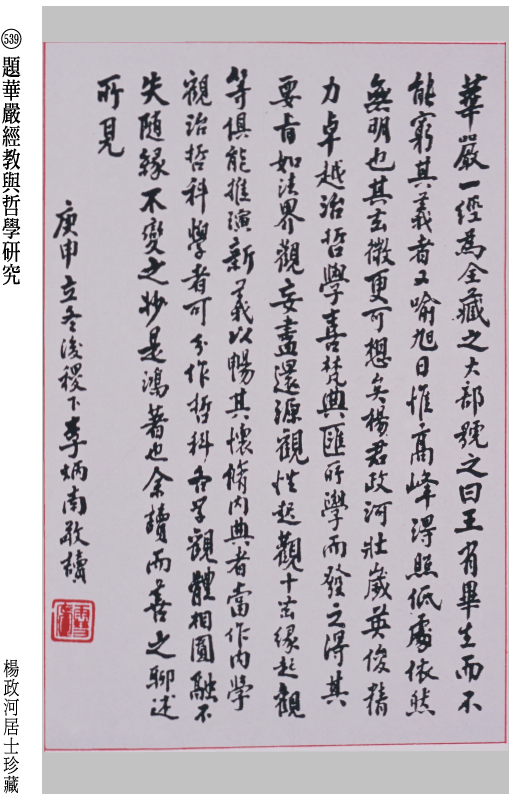 539 題華嚴經教與哲學研究
華嚴一經為全藏之大部號之曰王有畢生而不
能窮其義者又喻旭日惟高峰得照低處依然
無明也其玄微更可想矣楊君政河壯歲英俊精
力卓越治哲學喜梵典匯所學而發之得其
要旨如法界觀妄盡還源觀性起觀十玄緣起觀
等俱能推演新義以暢其懷脩內典者當作內學
觀治哲科學者可分作哲科各學觀體相圓融不
失隨緣不變之妙是鴻著也余讀而善之聊述
所見
庚申立冬後稷下李炳南敬讀
楊政河居士珍藏